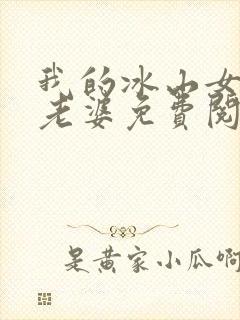 我的冰山女
老婆免费阅
是黄家小瓜啊